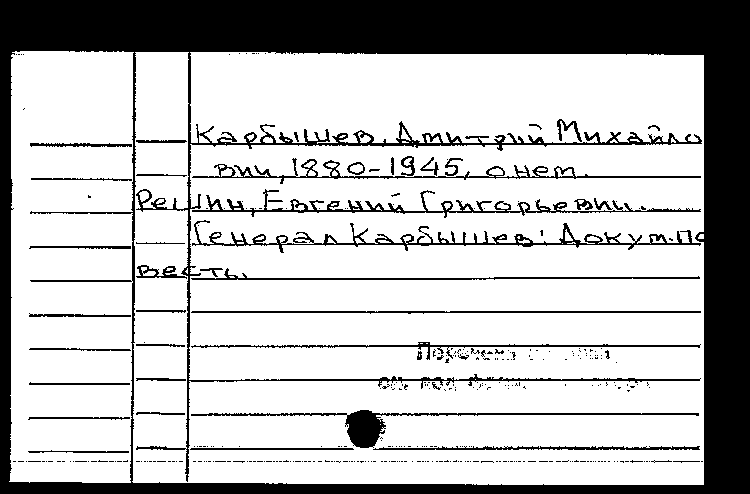 Карбышев, Дмитрий Михайло
вич, 1880-1945, о нем.
Решин, Евгений Григорьевич.
Генерал Карбышев: Докум. по
весть.
см. под